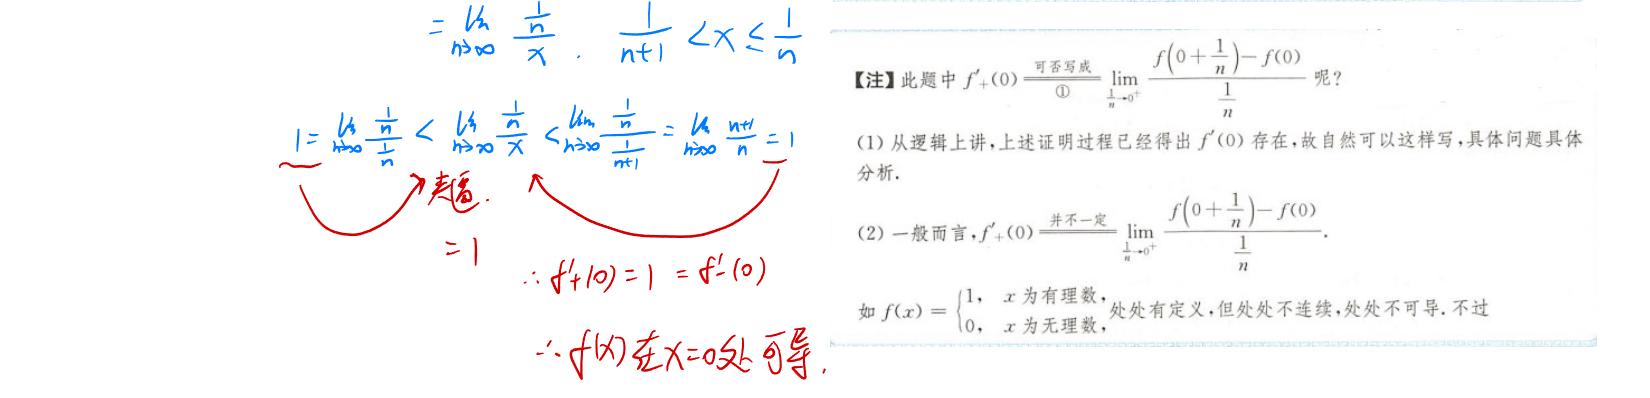 = lim_{n→∞} \frac{\frac{1}{n}}{x} . \frac{1}{n+1} < x ≤ \frac{1}{n}
1 = lim_{n→∞} \frac{\frac{1}{n}}{\frac{1}{n}} < lim_{n→∞} \frac{\frac{1}{n}}{x} < lim_{n→∞} \frac{\frac{1}{n}}{\frac{1}{n+1}} = lim_{n→∞} \frac{n+1}{n} = 1
= 1
∴ f'+(0) = 1 = f'-(0)
∴ f(x) 在 x=0处 可导.
【注】此题中 f'₊(0) \xlongequal[①]{可否写成} lim_{\frac{1}{n}→0⁺} \frac{f(0+\frac{1}{n})-f(0)}{\frac{1}{n}} 呢?
(1) 从逻辑上讲,上述证明过程已经得出 f'(0) 存在,故自然可以这样写,具体问题具体
分析.
(2) 一般而言,f'₊(0) \xlongequal{并不一定} lim_{\frac{1}{n}→0⁺} \frac{f(0+\frac{1}{n})-f(0)}{\frac{1}{n}}.
如 f(x) = {1, x 为有理数, 0, x 为无理数, 处处有定义,但处处不连续,处处不可导.不过